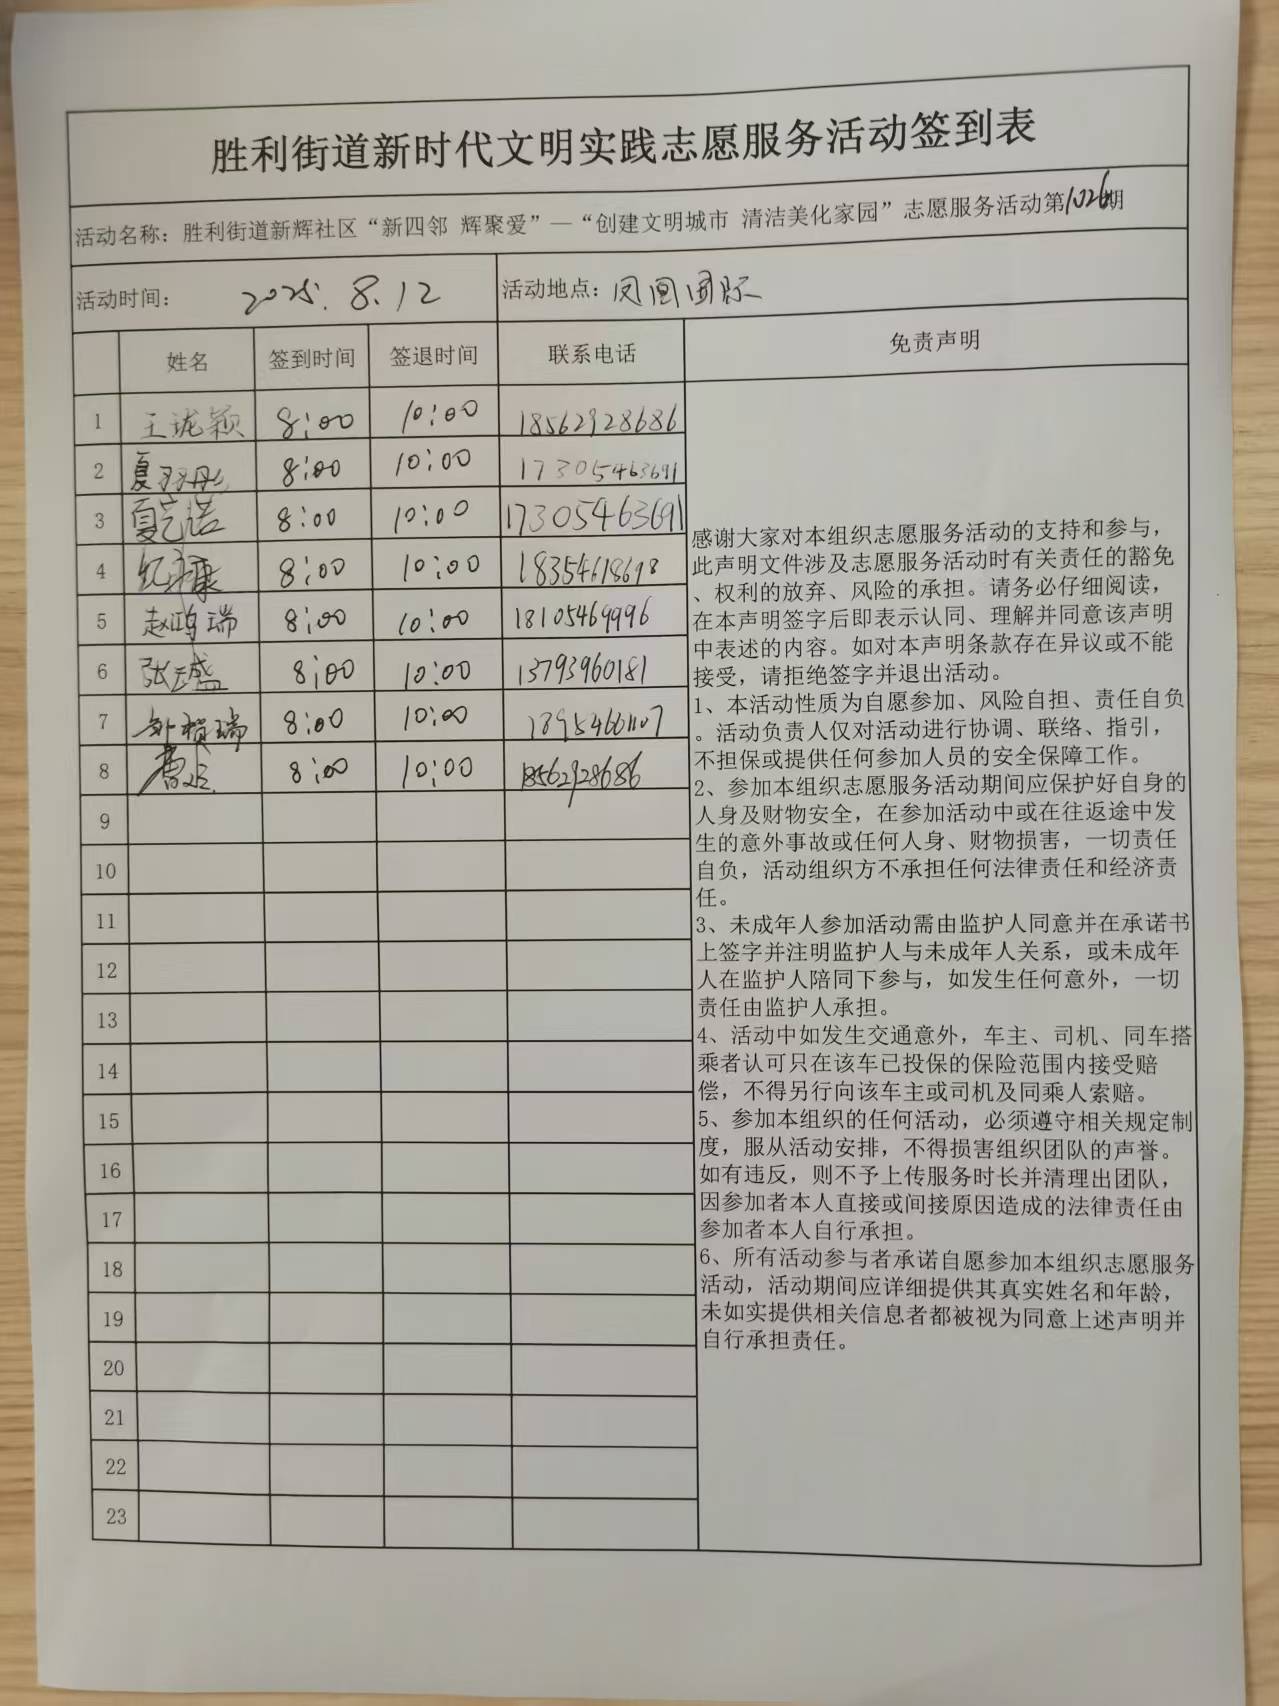 胜利街道新时代文明实践志愿服务活动签到表
活动名称：胜利街道新辉社区“新四邻 辉聚爱”—“创建文明城市 清洁美化家园”志愿服务活动第1026期
活动时间： 2025.8.12 活动地点：凤凰国际
姓名 签到时间 签退时间 联系电话 免责声明
1 王珑颖 8:00 10:00 18562928686
2 夏羽彤 8:00 10:00 17305463691
3 夏艺诺 8:00 10:00 17305463691
4 8:00 10:00 18354618698
5 赵鸿瑞 8:00 10:00 18105469996
6 张盛 8:00 10:00 13793960181
7 瑞 8:00 10:00 18954661107
8 8:00 10:00 18562928686
9
10
11
12
13
14
15
16
17
18
19
20
21
22
23
感谢大家对本组织志愿服务活动的支持和参与，
此声明文件涉及志愿服务活动时有关责任的豁免
、权利的放弃、风险的承担。请务必仔细阅读，
在本声明签字后即表示认同、理解并同意该声明
中表述的内容。如对本声明条款存在异议或不能
接受，请拒绝签字并退出活动。
1、本活动性质为自愿参加、风险自担、责任自负
。活动负责人仅对活动进行协调、联络、指引，
不担保或提供任何参加人员的安全保障工作。
2、参加本组织志愿服务活动期间应保护好自身的
人身及财物安全，在参加活动中或在往返途中发
生的意外事故或任何人身、财物损害，一切责任
自负，活动组织方不承担任何法律责任和经济责
任。
3、未成年人参加活动需由监护人同意并在承诺书
上签字并注明监护人与未成年人关系，或未成年
人在监护人陪同下参与，如发生任何意外，一切
责任由监护人承担。
4、活动中如发生交通意外，车主、司机、同车搭
乘者认可只在该车已投保的保险范围内接受赔
偿，不得另行向该车主或司机及同乘人索赔。
5、参加本组织的任何活动，必须遵守相关规定制
度，服从活动安排，不得损害组织团队的声誉。
如有违反，则不予上传服务时长并清理出团队，
因参加者本人直接或间接原因造成的法律责任由
参加者本人自行承担。
6、所有活动参与者承诺自愿参加本组织志愿服务
活动，活动期间应详细提供其真实姓名和年龄，
未如实提供相关信息者都被视为同意上述声明并
自行承担责任。